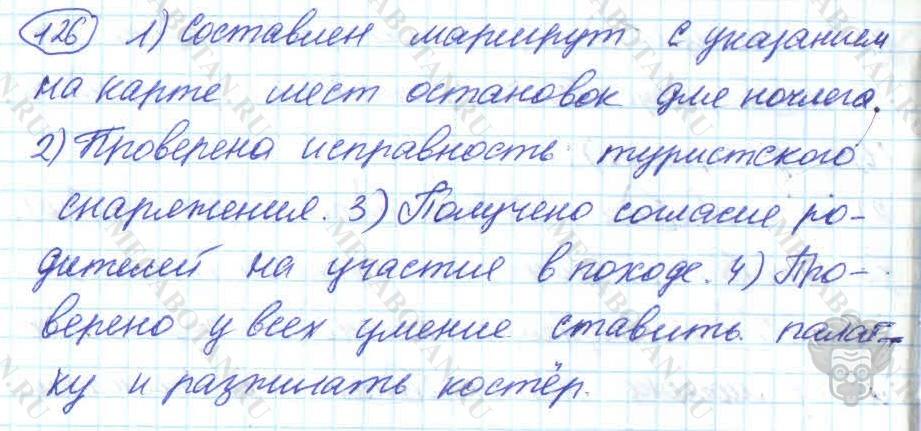 126 1) Составлен маршрут с указанием
на карте мест остановок для ночлега.
2) Проверена исправность туристского
снаряжения. 3) Получено согласие ро-
дителей на участие в походе. 4) Про-
верено у всех умение ставить палат-
ку и разжигать костёр.
MRABOTAN.RU